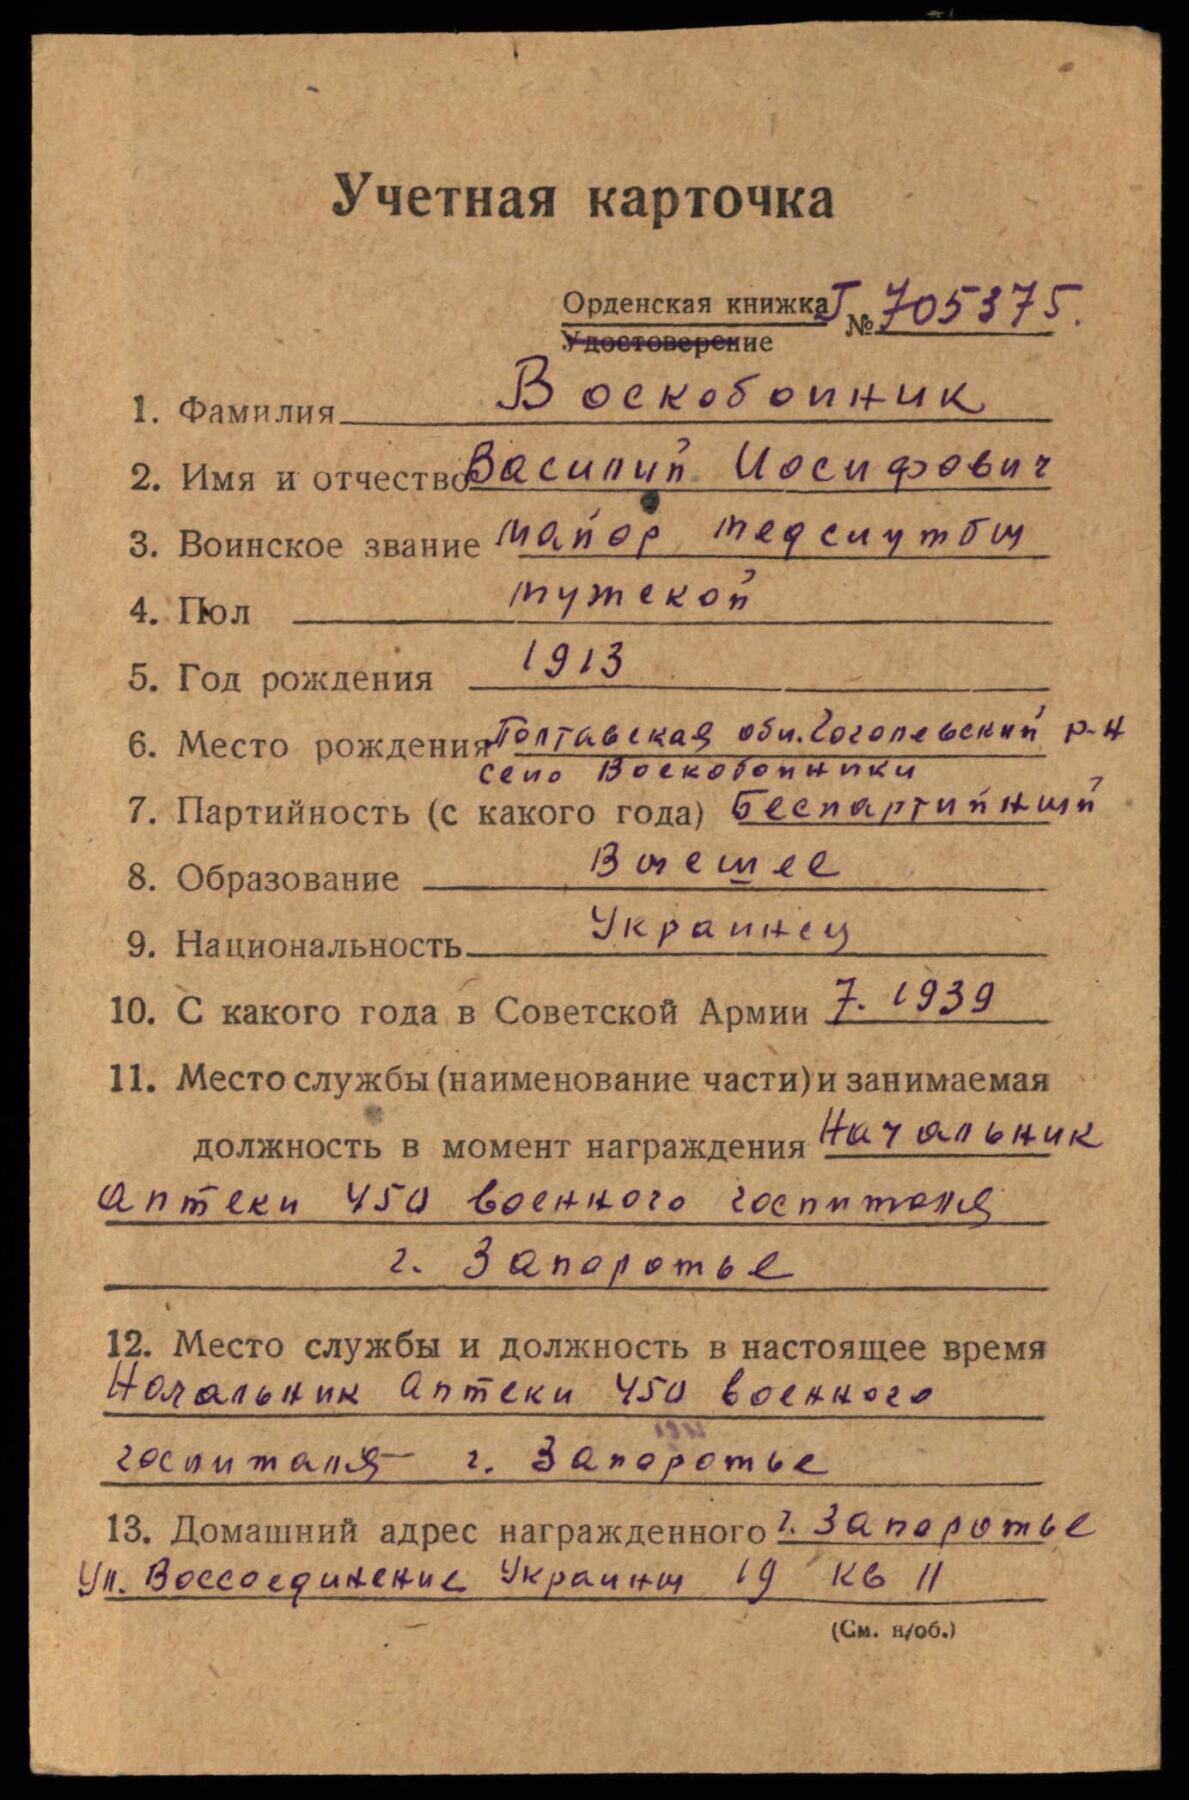 Учетная карточка
Орденская книжка Г № 705375.
Удостоверение
1. Фамилия Воскобойник
2. Имя и отчество Василий Иосифович
3. Воинское звание майор медслужбы
4. Пол мужской
5. Год рождения 1913
6. Место рождения Полтавская обл. Гоголевский р-н
село Воскобойники
7. Партийность (с какого года) Беспартийный
8. Образование Высшее
9. Национальность Украинец
10. С какого года в Советской Армии 7. 1939
11. Место службы (наименование части) и занимаемая
должность в момент награждения Начальник
аптеки 450 военного госпиталя
г. Запорожье
12. Место службы и должность в настоящее время
Начальник аптеки 450 военного
госпиталя г. Запорожье
13. Домашний адрес награжденного г. Запорожье
ул. Воссоединение Украины 19 кв 11
(См. н/об.)